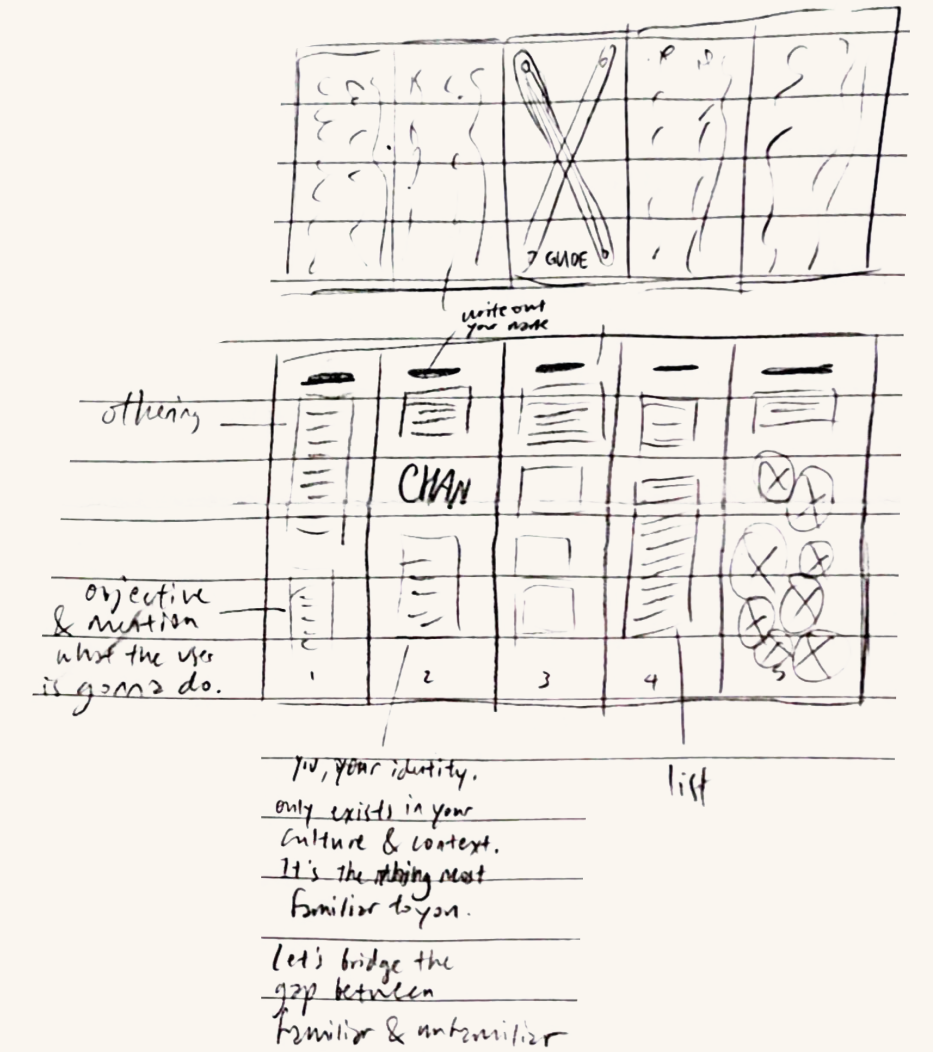 GUIDE
write out
your name
othering
CHAN
objective
& mention
what the user
is gonna do.
1 2 3 4 5
you, your identity.
only exists in your
culture & context.
It's the thing most
familiar to you.
list
Let's bridge the
gap between
familiar & unfamiliar